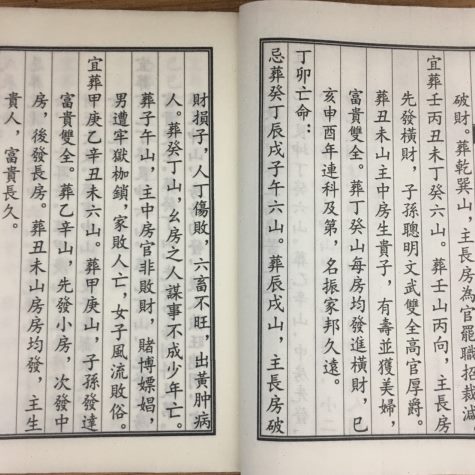 破財。葬乾巽山，主長房為官罷職招裁減。
宜葬壬丙丑未丁癸六山。葬壬山丙向，主長房
先發橫財，子孫聰明文武雙全高官厚爵。
葬丑未山主中房生貴子，有壽並獲美婦，
富貴雙全。葬丁癸山每房均發進橫財，巳
亥申酉年連科及第，名振家邦久遠。
丁卯亡命：
忌葬癸丁辰戌子午六山。葬辰戌山，主長房破
財損子，人丁傷敗，六畜不旺，出黃肿病
人。葬癸丁山，幺房之人謀事不成少年亡。
葬子午山，主中房官非敗財，賭博嫖娼，
男遭牢獄枷鎖，家敗人亡，女子風流敗俗。
宜葬甲庚乙辛丑未六山。葬甲庚山，子孫發達
富貴雙全。葬乙辛山，先發小房，次發中
房，後發長房。葬丑未山房房均發，主生
貴人，富貴長久。